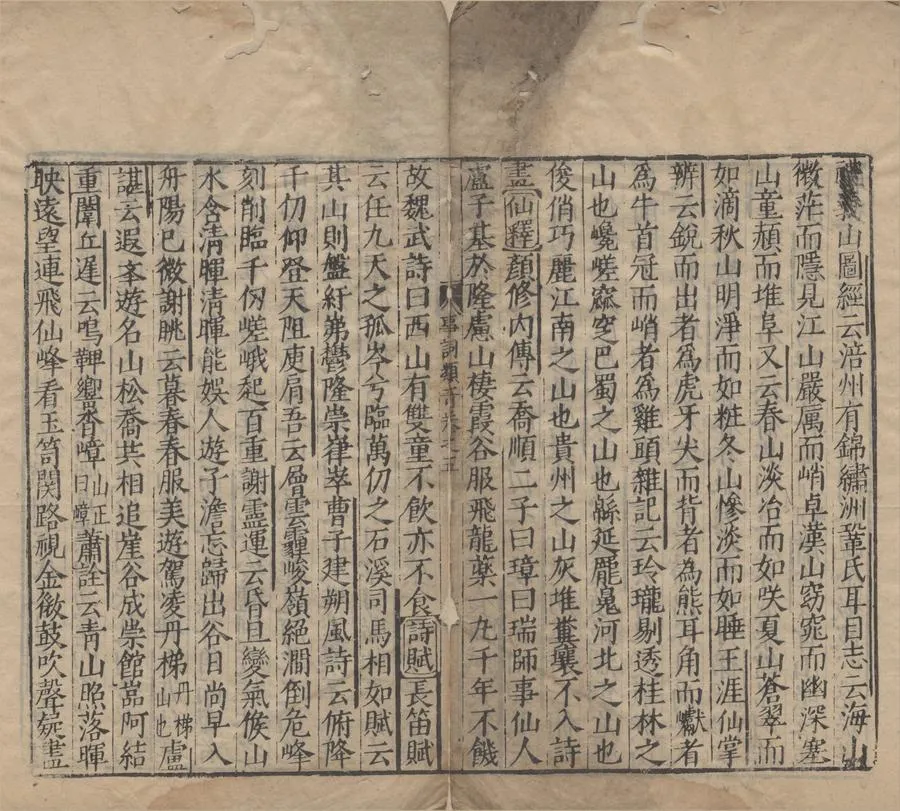 山圖經云涪州有錦繡洲鞏氏耳目志云海山
微茫而隱見江山嚴厲而峭卓漢山窈窕而幽深塞
山童頳而堆阜又云春山淡冶而如咲夏山蒼翠而
如滴秋山明淨而如粧冬山慘淡而如睡王涯仙掌
辨云銳而出者爲虎牙尖而背者為熊耳角而巘者
爲牛首冠而峭者為雞頭雜記云玲瓏剔透桂林之
山也巉嵯竅空巴蜀之山也緜延厖晁河北之山也
俊俏巧麗江南之山也貴州之山灰堆糞壤不入詩
畫仙釋顏修內傳云喬順二子曰璋曰瑞師事仙人
盧子基於隆慮山棲霞谷服飛龍藥一丸千年不饑
事詞類奇卷之五
故魏武詩曰西山有雙童不飲亦不食詩賦長笛賦
云任九天之孤岑兮臨萬仞之石溪司馬相如賦云
其山則盤紆茀鬱隆崇嵂崒曹子建朔風詩云俯降
千仞仰登天阻庾肩吾云層雲霾峻嶺絕澗倒危峰
刻削臨千仞嵯峨起百重謝靈運云昏旦變氣候山
水含清暉清暉能娛人遊子澹忘歸出谷日尚早入
舟陽已微謝朓云暮春春服美遊駕凌丹梯丹梯山也盧
諶云遐峯遊名山松喬共相追崖谷成崇館嵓阿結
重闈丘遲云鳴鞞響沓嶂山正曰嶂蕭詮云青山照落暉
映遠望連飛仙峰看玉笥関路視金微鼓吹聲疑盡